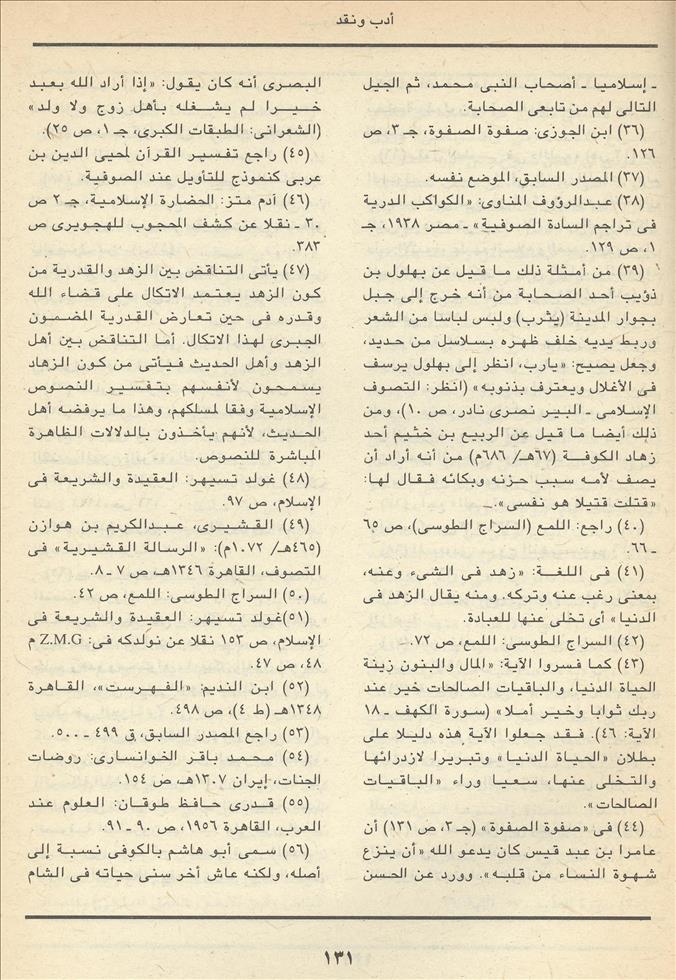 أدب ونقد
ـ إسلاميا ـ أصحاب النبى محمد، ثم الجيل
التالى لهم من تابعى الصحابة.
(٣٦) ابن الجوزى: صفوة الصفوة، جـ ٣، ص
١٢٦.
(٣٧) المصدر السابق، الموضع نفسه.
(٣٨) عبدالرؤوف المناوى: «الكواكب الدرية
فى تراجم السادة الصوفية» ـ مصر ١٩٣٨، جـ
١، ص ١٢٩.
(٣٩) من أمثلة ذلك ما قيل عن بهلول بن
ذؤيب أحد الصحابة من أنه خرج إلى جبل
بجوار المدينة (يثرب) ولبس لباسا من الشعر
وربط يديه خلف ظهره بسلاسل من حديد،
وجعل يصيح: «يارب، انظر إلى بهلول يرسف
فى الأغلال ويعترف بذنوبه» (انظر: التصوف
الإسلامى ـ البير نصرى نادر، ص ١٠)، ومن
ذلك أيضا ما قيل عن الربيع بن خثيم أحد
زهاد الكوفة (٦٧هـ/ ٦٨٦م) من أنه أراد أن
يصف لأمه سبب حزنه وبكائه فقال لها:
«قتلت قتيلا هو نفسى».
(٤٠) راجع: اللمع (السراج الطوسى)، ص ٦٥
ـ ٦٦.
(٤١) فى اللغة: «زهد فى الشىء وعنه،
بمعنى رغب عنه وتركه. ومنه يقال الزهد فى
الدنيا» أى تخلى عنها للعبادة.
(٤٢) السراج الطوسى: اللمع، ص ٧٢.
(٤٣) كما فسروا الآية: «المال والبنون زينة
الحياة الدنيا، والباقيات الصالحات خير عند
ربك ثوابا وخير أملا» (سورة الكهف ـ ١٨
الآية: ٤٦). فقد جعلوا الآية هذه دليلا على
بطلان «الحياة الدنيا» وتبريرا لازدرائها
والتخلى عنها، سعيا وراء «الباقيات
الصالحات».
(٤٤) فى «صفوة الصفوة» (جـ ٣، ص ١٣١) أن
عامرا بن عبد قيس كان يدعو الله «أن ينزع
شهوة النساء من قلبه». وورد عن الحسن
البصرى أنه كان يقول: «إذا أراد الله بعبد
خيرا لم يشغله بأهل زوج ولا ولد»
(الشعرانى: الطبقات الكبرى، جـ ١، ص ٢٥).
(٤٥) راجع تفسير القرآن لمحيى الدين بن
عربى كنموذج للتأويل عند الصوفية.
(٤٦) آدم متز: الحضارة الإسلامية، جـ ٢ ص
٣٠ ـ نقلا عن كشف المحجوب للهجويرى ص
٣٨٣.
(٤٧) يأتى التناقض بين الزهد والقدرية من
كون الزهد يعتمد الاتكال على قضاء الله
وقدره فى حين تعارض القدرية المضمون
الجبرى لهذا الاتكال. أما التناقض بين أهل
الزهد وأهل الحديث فيأتى من كون الزهاد
يسمحون لأنفسهم بتفسير النصوص
الإسلامية وفقا لمسلكهم، وهذا ما يرفضه أهل
الحديث، لأنهم يأخذون بالدلالات الظاهرة
المباشرة للنصوص.
(٤٨) غولد تسيهر: العقيدة والشريعة فى
الإسلام، ص ٩٧.
(٤٩) القشيرى، عبدالكريم بن هوازن
(٤٦٥هـ/ ١٠٧٢م): «الرسالة القشيرية» فى
التصوف، القاهرة ١٣٤٦هـ، ص ٧ ـ ٨.
(٥٠) السراج الطوسى: اللمع، ص ٤٢.
(٥١)غولد تسيهر: العقيدة والشريعة فى
الإسلام، ص ١٥٣ نقلا عن نولدكه فى: Z.M.G م
٤٨، ص ٤٧.
(٥٢) ابن النديم: «الفهرست»، القاهرة
١٣٤٨هـ (ط ٤)، ص ٤٩٨.
(٥٣) راجع المصدر السابق، ق ٤٩٩ ـ ٥٠٠.
(٥٤) محمد باقر الخوانسارى: روضات
الجنات، إيران ١٣٠٧هـ، ص ١٥٤.
(٥٥) قدرى حافظ طوقان: العلوم عند
العرب، القاهرة ١٩٥٦، ص ٩٠ ـ ٩١.
(٥٦) سمى أبو هاشم بالكوفى نسبة إلى
أصله، ولكنه عاش أخر سنى حياته فى الشام
١٣١